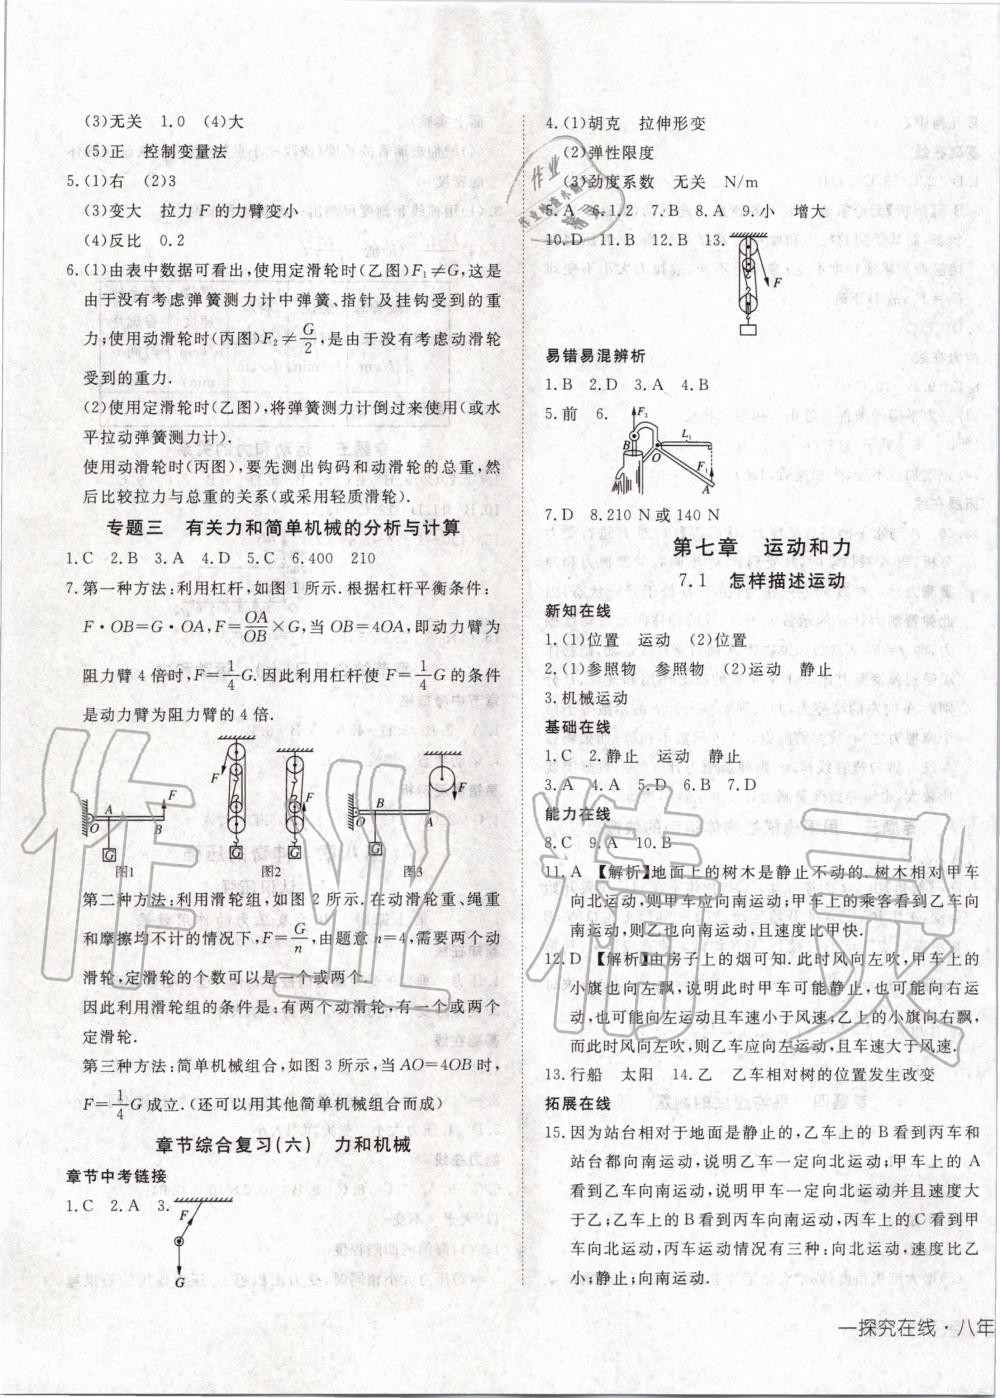 (3)无关 1.0 (4)大
(5)正 控制变量法
5.(1)右 (2)3
(3)变大 拉力F的力臂变小
(4)反比 0.2
6.(1)由表中数据可看出,使用定滑轮时(乙图)F₁≠G,这是
由于没有考虑弹簧测力计中弹簧、指针及挂钩受到的重
力;使用动滑轮时(丙图)F₂≠G/2,是由于没有考虑动滑轮
受到的重力.
(2)使用定滑轮时(乙图),将弹簧测力计倒过来使用(或水
平拉动弹簧测力计).
使用动滑轮时(丙图),要先测出钩码和动滑轮的总重,然
后比较拉力与总重的关系(或采用轻质滑轮).
专题三 有关力和简单机械的分析与计算
1.C 2.B 3.A 4.D 5.C 6.400 210
7.第一种方法:利用杠杆,如图1所示.根据杠杆平衡条件:
F·OB=G·OA,F=OA/OB×G,当OB=4OA,即动力臂为
阻力臂4倍时,F=1/4G.因此利用杠杆使F=1/4G的条件
是动力臂为阻力臂的4倍.
O A B F G
图1
F G
图2
F G
O B A F G
图3
第二种方法:利用滑轮组,如图2所示.在动滑轮重、绳重
和摩擦均不计的情况下,F=G/n,由题意n=4,需要两个动
滑轮,定滑轮的个数可以是一个或两个.
因此利用滑轮组的条件是:有两个动滑轮,有一个或两个
定滑轮.
第三种方法:简单机械组合,如图3所示,当AO=4OB时,
F=1/4G成立.(还可以用其他简单机械组合而成)
章节综合复习(六) 力和机械
章节中考链接
1.C 2.A 3.
F
G
4.(1)胡克 拉伸形变
(2)弹性限度
(3)劲度系数 无关 N/m
5.A 6.1.2 7.B 8.A 9.小 增大
10.D 11.B 12.B 13.
F
易错易混辨析
1.B 2.D 3.A 4.B
5.前 6.
F₂ B L₁ O F₁ A
7.D 8.210 N或140 N
第七章 运动和力
7.1 怎样描述运动
新知在线
1.(1)位置 运动 (2)位置
2.(1)参照物 参照物 (2)运动 静止
3.机械运动
基础在线
1.C 2.静止 运动 静止
3.A 4.A 5.D 6.B 7.D
能力在线
8.C 9.A 10.B
11.A 【解析】地面上的树木是静止不动的.树木相对甲车
向北运动,则甲车应向南运动;甲车上的乘客看到乙车向
南运动,则乙也向南运动,且速度比甲快.
12.D 【解析】由房子上的烟可知.此时风向左吹,甲车上的
小旗也向左飘,说明此时甲车可能静止,也可能向右运
动,也可能向左运动且车速小于风速,乙上的小旗向右飘,
而此时风向左吹,则乙车应向左运动,且车速大于风速.
13.行船 太阳 14.乙 乙车相对树的位置发生改变
拓展在线
15.因为站台相对于地面是静止的,乙车上的B看到丙车和
站台都向南运动,说明乙车一定向北运动;甲车上的A
看到乙车向北运动,说明甲车一定向北运动并且速度大
于乙;乙车上的B看到丙车向南运动,丙车上的C看到甲
车向北运动,丙车运动情况有三种:向北运动,速度比乙
小;静止;向南运动.
一探究在线·八年
作业精灵